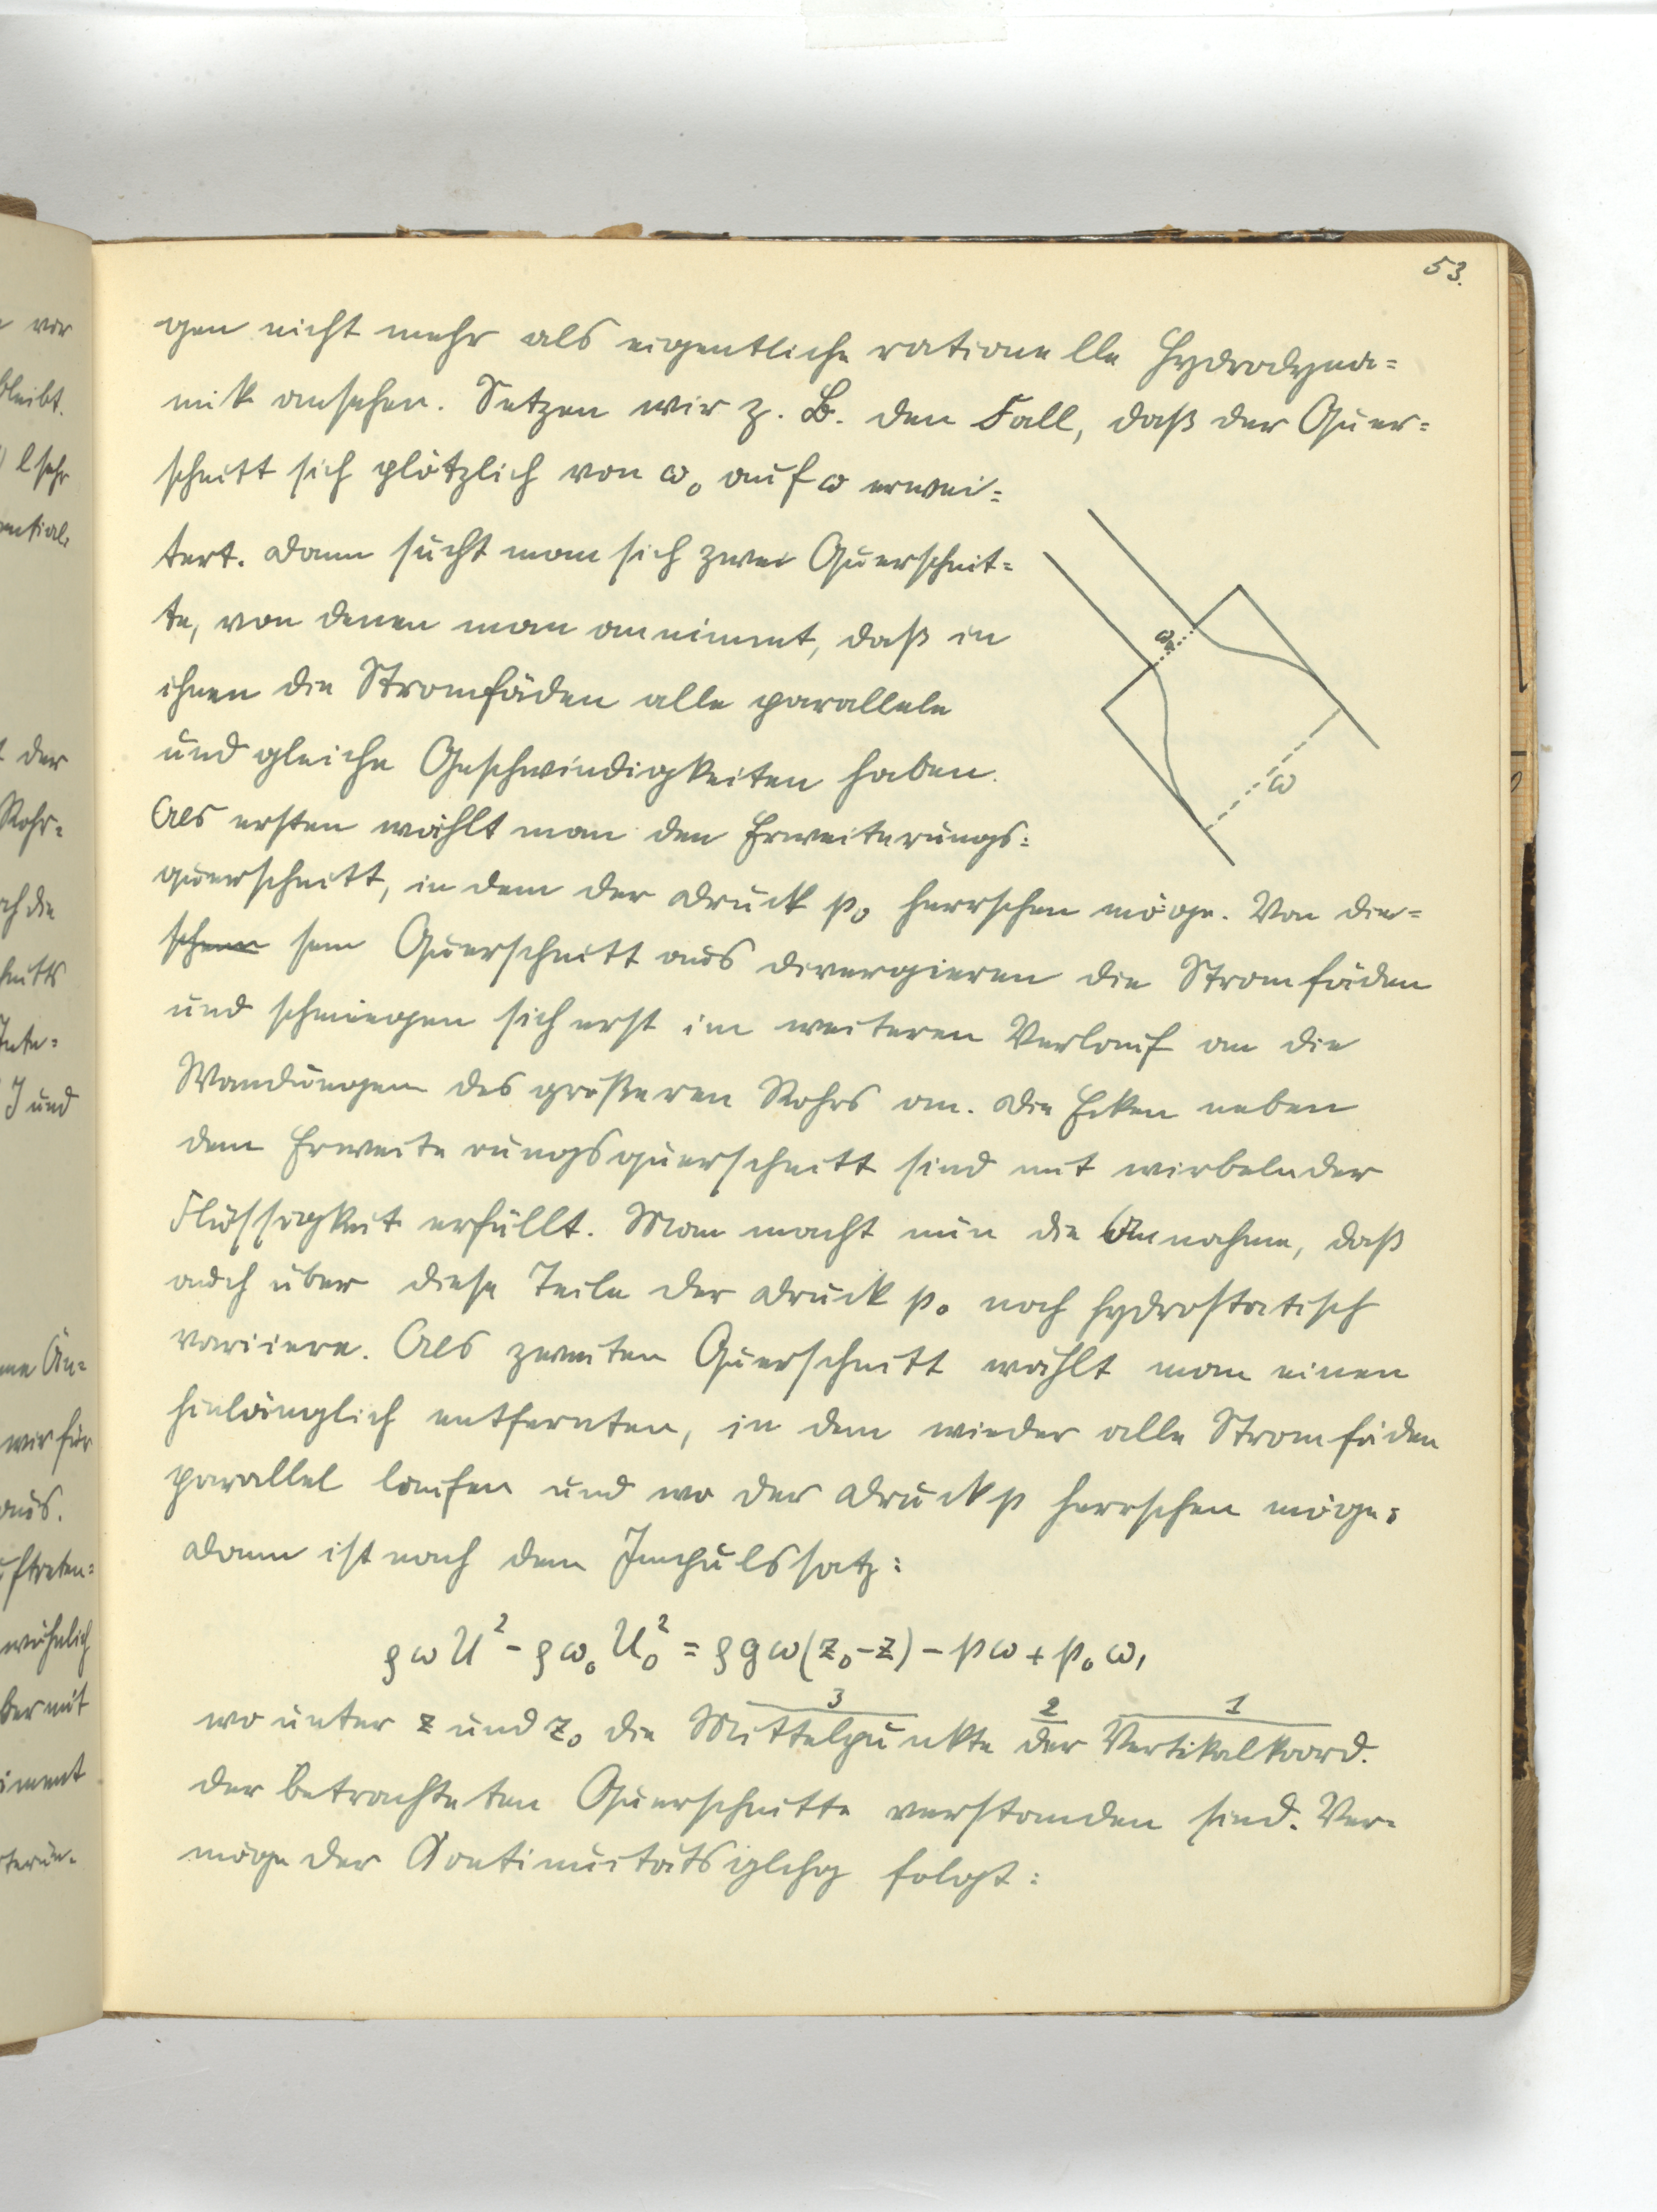 53.
gen nicht mehr als eigentliche rationelle Hydrodyna=
mik ansehen. Setzen wir z. B. den Fall, daß der Quer=
schnitt sich plötzlich von ω₀ auf ω erwei=
tert. Dann sucht man sich zwei Querschnit=
te, von denen man annimmt, daß in
ihnen die Stromfäden alle parallele
und gleiche Geschwindigkeiten haben.
Als ersten wählt man den Erweiterungs=
querschnitt, in dem der Druck p₀ herrschen möge. Von die=
sem Querschnitt aus divergieren die Stromfäden
und schmiegen sich erst im weiteren Verlauf an die
Wandungen des größeren Rohrs an. Die Ecken neben
dem Erweiterungsquerschnitt sind mit wirbelnder
Flüssigkeit erfüllt. Man macht nun die Annahme, daß
auch über diese Teile der Druck p₀ noch hydrostatisch
variiere. Als zweiten Querschnitt wählt man einen
hinlänglich entfernten, in dem wieder alle Stromfäden
parallel laufen und wo der Druck p herrschen möge;
Dann ist nach dem Impulssatz:
ρωU² - ρω₀U₀² = ρgω(z₀-z) - pω + p₀ω,
3 2 1
wo unter z und z₀ die Mittelpunkte der Vertikalkoord.
der betrachteten Querschnitte verstanden sind. Ver=
möge der Continuitätsglchg folgt:
ω₀
ω
vor
bleibt.
l sehr
der
Rohr=
ach die
J und
wir für
aus.
ber mit